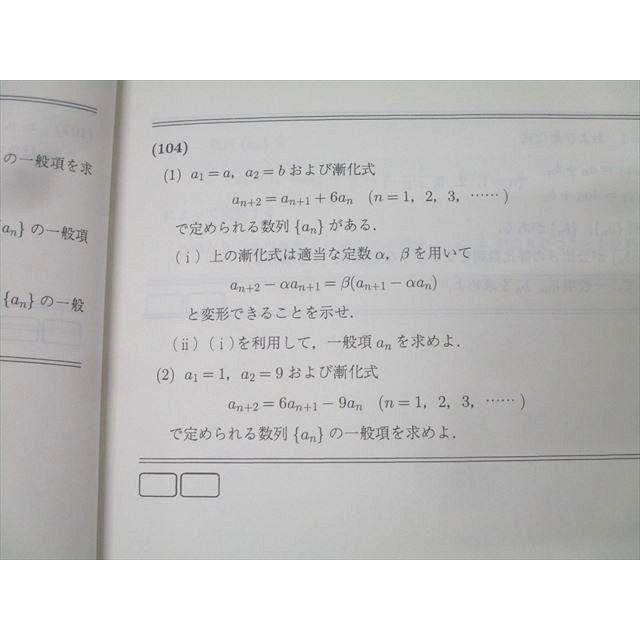 の一般項を求
{aₙ} の一般項
{aₙ} の一般
(104)
(1) a₁ = a, a₂ = b および漸化式
aₙ₊₂ = aₙ₊₁ + 6aₙ (n = 1, 2, 3, ……)
で定められる数列 {aₙ} がある.
(ⅰ) 上の漸化式は適当な定数 α, β を用いて
aₙ₊₂ − αaₙ₊₁ = β(aₙ₊₁ − αaₙ)
と変形できることを示せ.
(ⅱ) (ⅰ)を利用して, 一般項 aₙ を求めよ.
(2) a₁ = 1, a₂ = 9 および漸化式
aₙ₊₂ = 6aₙ₊₁ − 9aₙ (n = 1, 2, 3, ……)
で定められる数列 {aₙ} の一般項を求めよ.